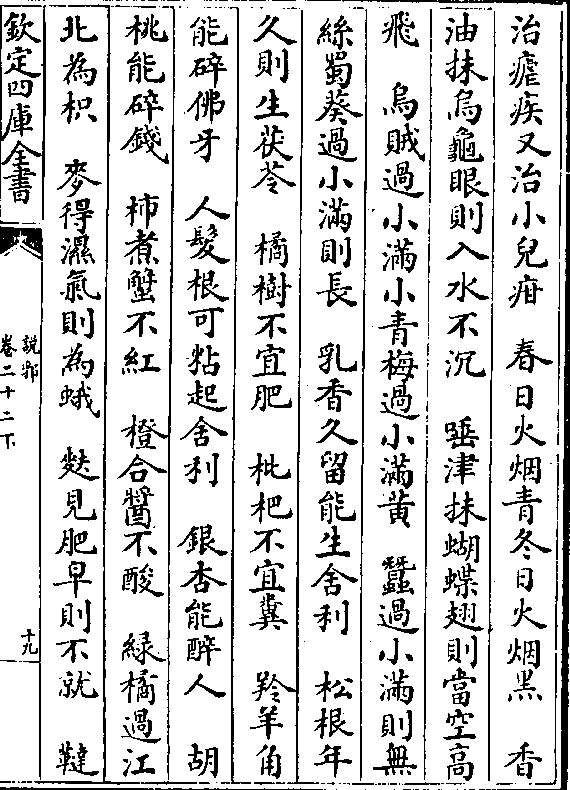 治瘧疾又治小兒疳　春日火烟青冬日火烟黑　香
油抹烏龜眼則入水不沉　唾津抹蝴蝶翅則當空高
飛　烏賊過小滿小青梅過小滿黄　蠶過小滿則無
絲蜀葵過小滿則長　乳香久留能生舍利　松根年
久則生茯苓　橘樹不宜肥　枇杷不宜糞　羚羊角
能碎佛牙　人髮根可粘起舍利　銀杏能醉人　胡
桃能碎錢　柿煮蟹不紅　橙合醬不酸　緑橘過江
北為枳　麥得濕氣則為蛾　麩見肥皁則不就　鞑
欽定四庫全書
說郛
卷二十二下
十九